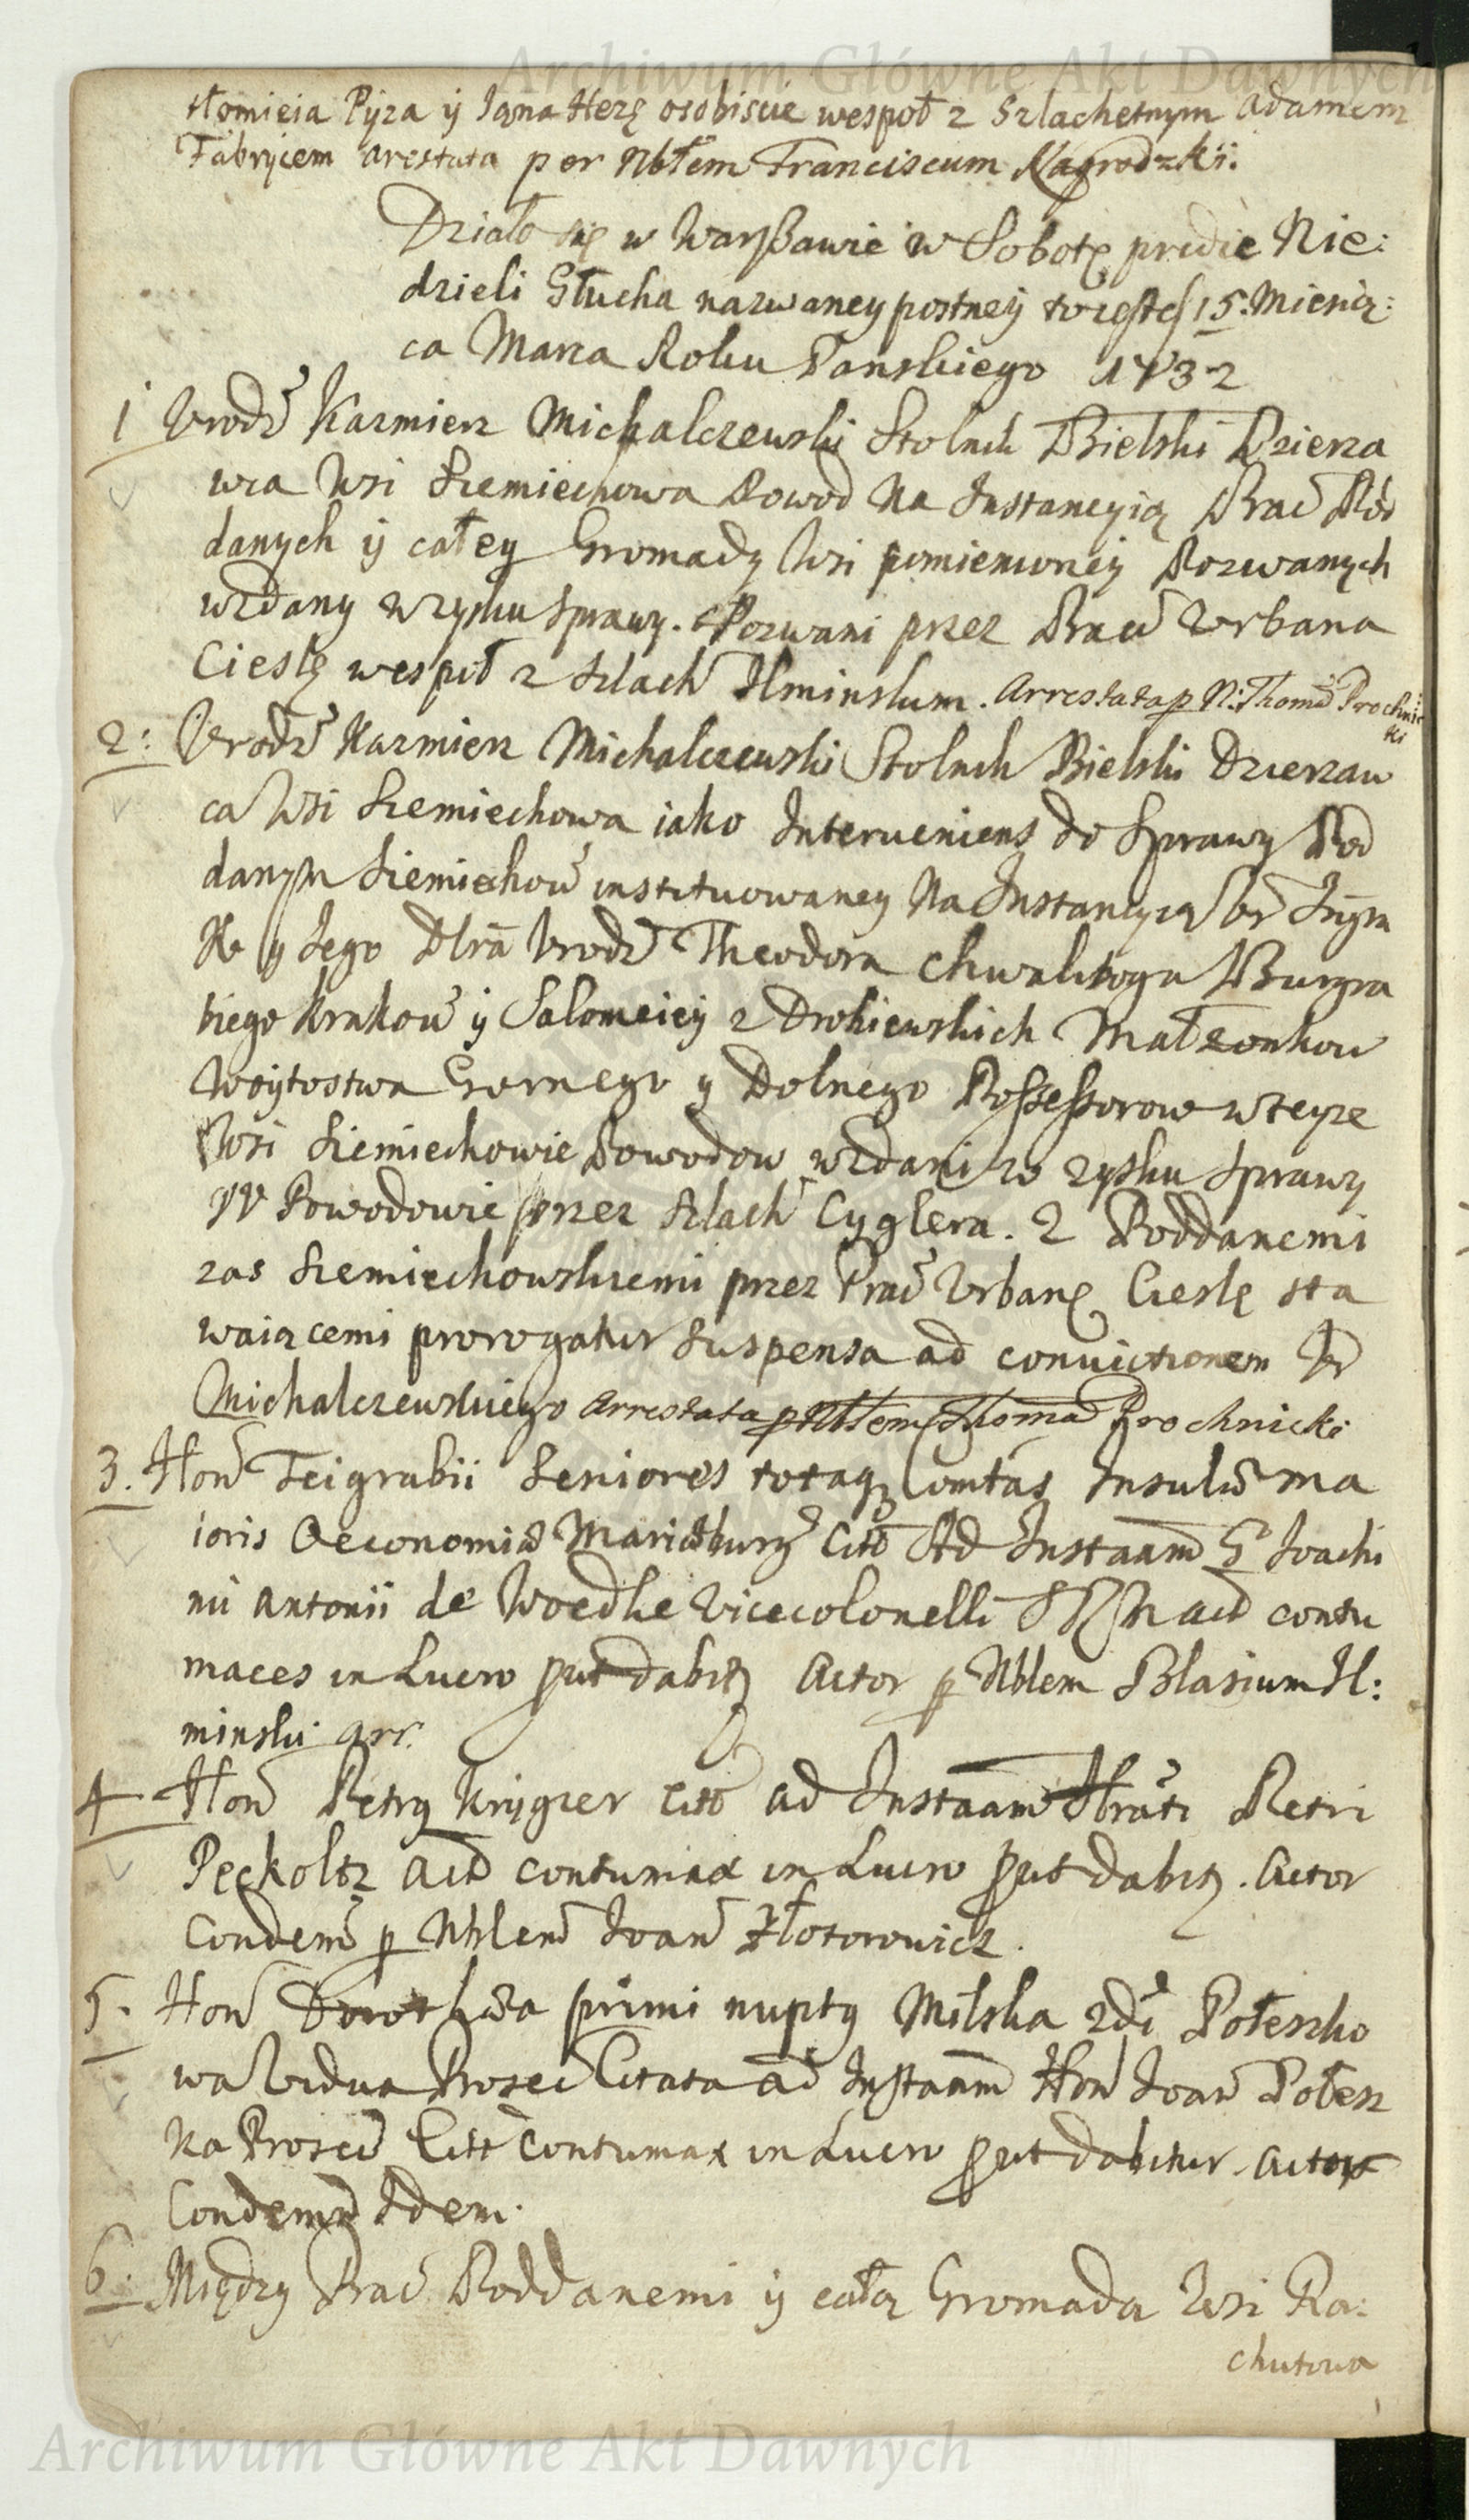 Archiwum Główne Akt Dawnych
słomieia Pyza ÿ Iana Herę osobiscie wespoł z Szlachetnym Adamem
Fabrycem arestata per Nbłem Franciscum Nagrodzki.
Działo się w Warszawie w Sobotę pridie Nie:
dzieli Głucha nazwaney postneÿ to iest 15. Miesią:
ca Marca Roku Panskiego 1732
1 Urodz Kazmierz Michalczewski Stolnik Bielski Dzierza
wca Wsi Siemiechowa Powod Na Instancyią Prac Pod
danych ÿ całey Gromady Wsi pomienioneÿ Pozwanych
wzdany w zysku sprawy. Pozwani przez Prac Urbana
Cieslę wespoł z Szlach Ilminskim. Arrestata p N: Thomā Prochnic
ki
2: Urodz Kazmierz Michalczewski Stolnik Bielski Dzierzaw
ca Wsi Siemiechowa iako Interueniens do Sprawy Pod
danym Siemiechow instituowaney Na Instancyią
y Iego Urodz Theodora Chwaliboga Burgra
biego Krakow ÿ Salomeieÿ z Drohiewskich Małzonkow
Woytostwa Gornego y Dolnego Possessorow w teyze
Wsi Siemiechowie Powodow wzdani w zysku Sprawy
W Powodowie przez Szlach Cyglera. Z Poddanemi
zas Siemiechowskiemi przez Prac Urbanę Cieslę sta
waiącemi prorogatur suspensa ad convictionem Ur
Michalczewskiego Arrestata p Nblem Thomā Prochnicki
3. Hon Teigrabii Seniores totaqȝ Comtās Insulæ ma
ioris Oeconomiæ Mariæburg Citt Ad Instaam G Ioachi
mi Antonii de Woedke Vicecolonelli S R M act contu
maces in Lucro put dabitȝ Actor p Nblem Blasium Il:
minski arr.
4 Hon Petrȝ Krÿgier Citt ad Instaam Petri
Peckoltz act contumax in Lucro put dabitȝ. Actor
Condemn p Nblem Ioan Złotorowicz.
5. Hon Dorothæa primi nupty Milska 2di Poteszko
wa Vidua Citata ad Instaam Hon Ioan Potesz
ka Citt contumax in Lucro put dabitur. Actor
Condemn Idem.
6. Między Prac Poddanemi ÿ całą Gromada Wsi Ra:
chutowa
Archiwum Główne Akt Dawnych